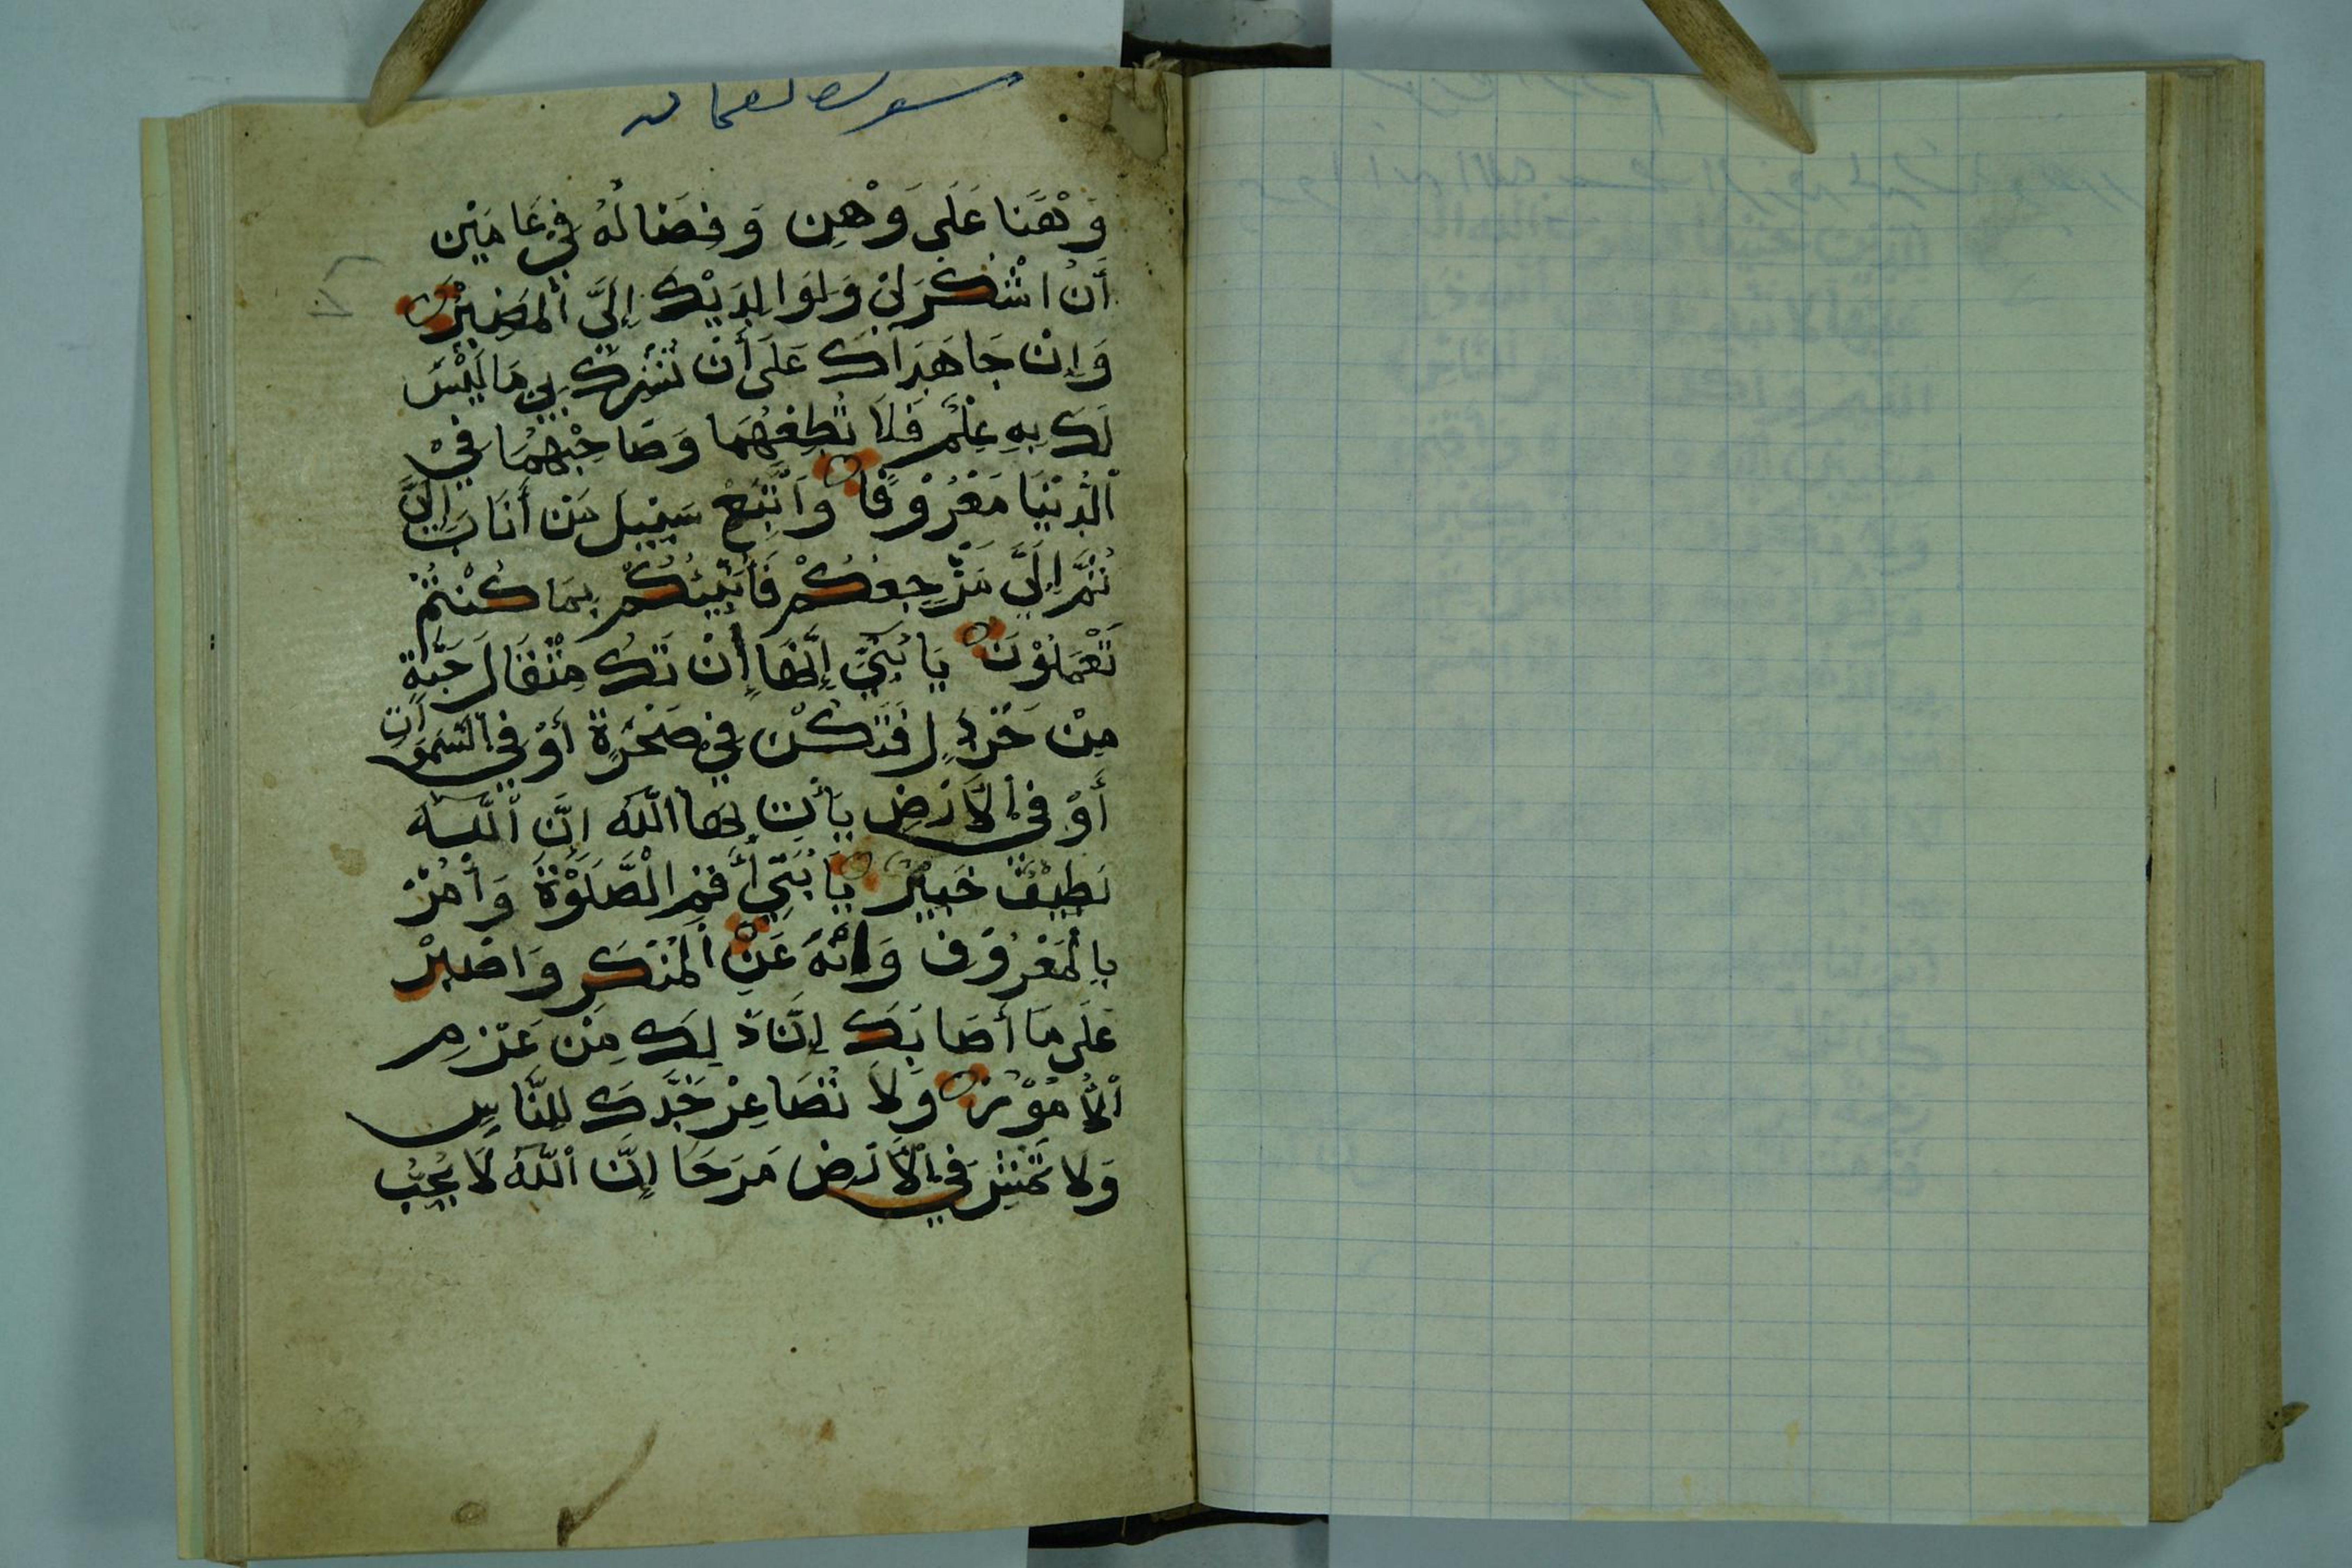 سورة لقمان
وَهْنًا عَلَى وَهْنٍ وَفِصَالُهُ فِيْ عَامَيْنِ
أَنُ اشْكُرْ لِيْ وَلِوَالِدَيْكَ إِلَيَّ ٱلْمَصِيْرُ
وَإِنْ جَاهَدَاكَ عَلَى أَنْ تُشْرِكَ بِيْ مَا لَيْسَ
لَكَ بِهِ عِلْمٌ فَلَا تُطِعْهُمَا وَصَاحِبْهُمَا فِيْ
ٱلْدُنْيَا مَعْرُوْفًا وَٱتَّبِعْ سَبِيْلَ مَنْ أَنَابَ إِلَيَّ
ثُمَّ إِلَيَّ مَرْجِعُكُمْ فَأُنَبِّئُكُمْ بِمَا كُنْتُمْ
تَعْمَلُوْنَ يَا بُنَيَّ إِنَّهَا إِنْ تَكُ مِثْقَالَ حَبَّةٍ
مِنْ خَرْدَلٍ فَتَكُنْ فِيْ صَخْرَةٍ أَوْ فِيْ ٱلسَّمَوَاتِ
أَوْ فِيْ ٱلْأَرْضِ يَأْتِ بِهَا ٱللَّهُ إِنَّ ٱللَّهَ
لَطِيْفٌ خَبِيْرٌ يَا بُنَيَّ أَقِمِ الْصَّلَوٰةَ وَأْمُرْ
بِالْمَعْرُوْفِ وَانْهَ عَنِ ٱلْمُنْكَرِ وَاصْبِرْ
عَلَى مَا أَصَابَكَ إِنَّ ذَلِكَ مِنْ عَزْمِ
ٱلْأُمُوْرِ وَلَا تُصَاعِرْ خَدَّكَ لِلنَّاسِ
وَلَا تَمْشِ فِيْ ٱلْأَرْضِ مَرَحًا إِنَّ ٱللَّهَ لَا يُحِبُّ